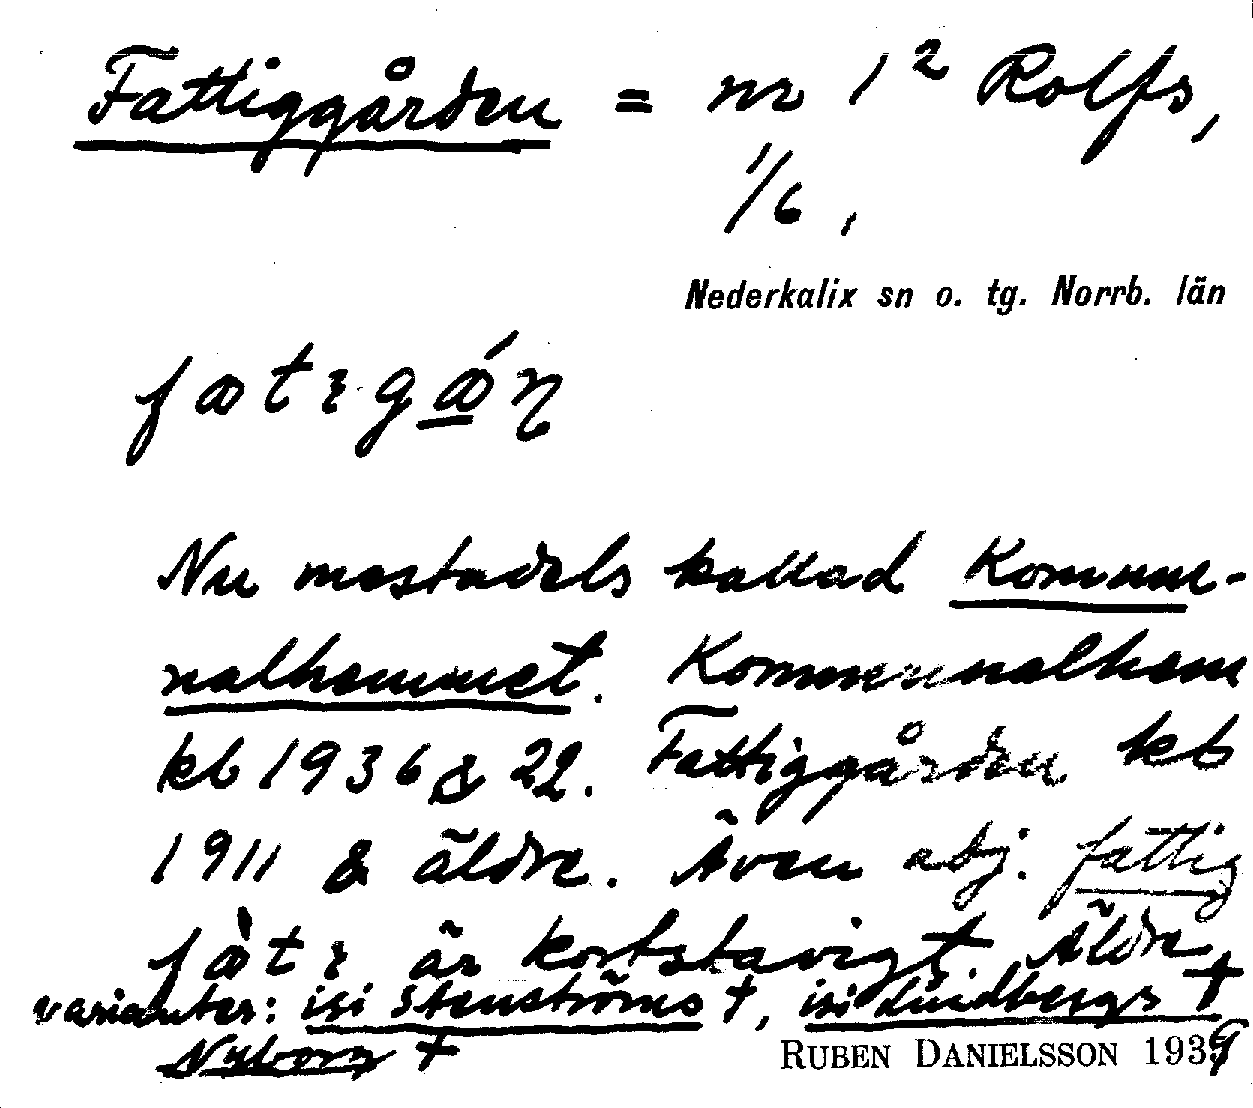 Fattiggården = nr 1² Rolfs,
1/6,
Nederkalix sn o. tg. Norrb. län
Nu mestadels kallad Kommu-
nalhemmet. Kommunalhem
kb 1936 & 22. Fattiggården kb
1911 & äldre. Även adj. fattig
är kortstavigt. Äldre
varianter: isi Stenströms †, isi Lindbergs †
Nyborg †
RUBEN DANIELSSON 1939